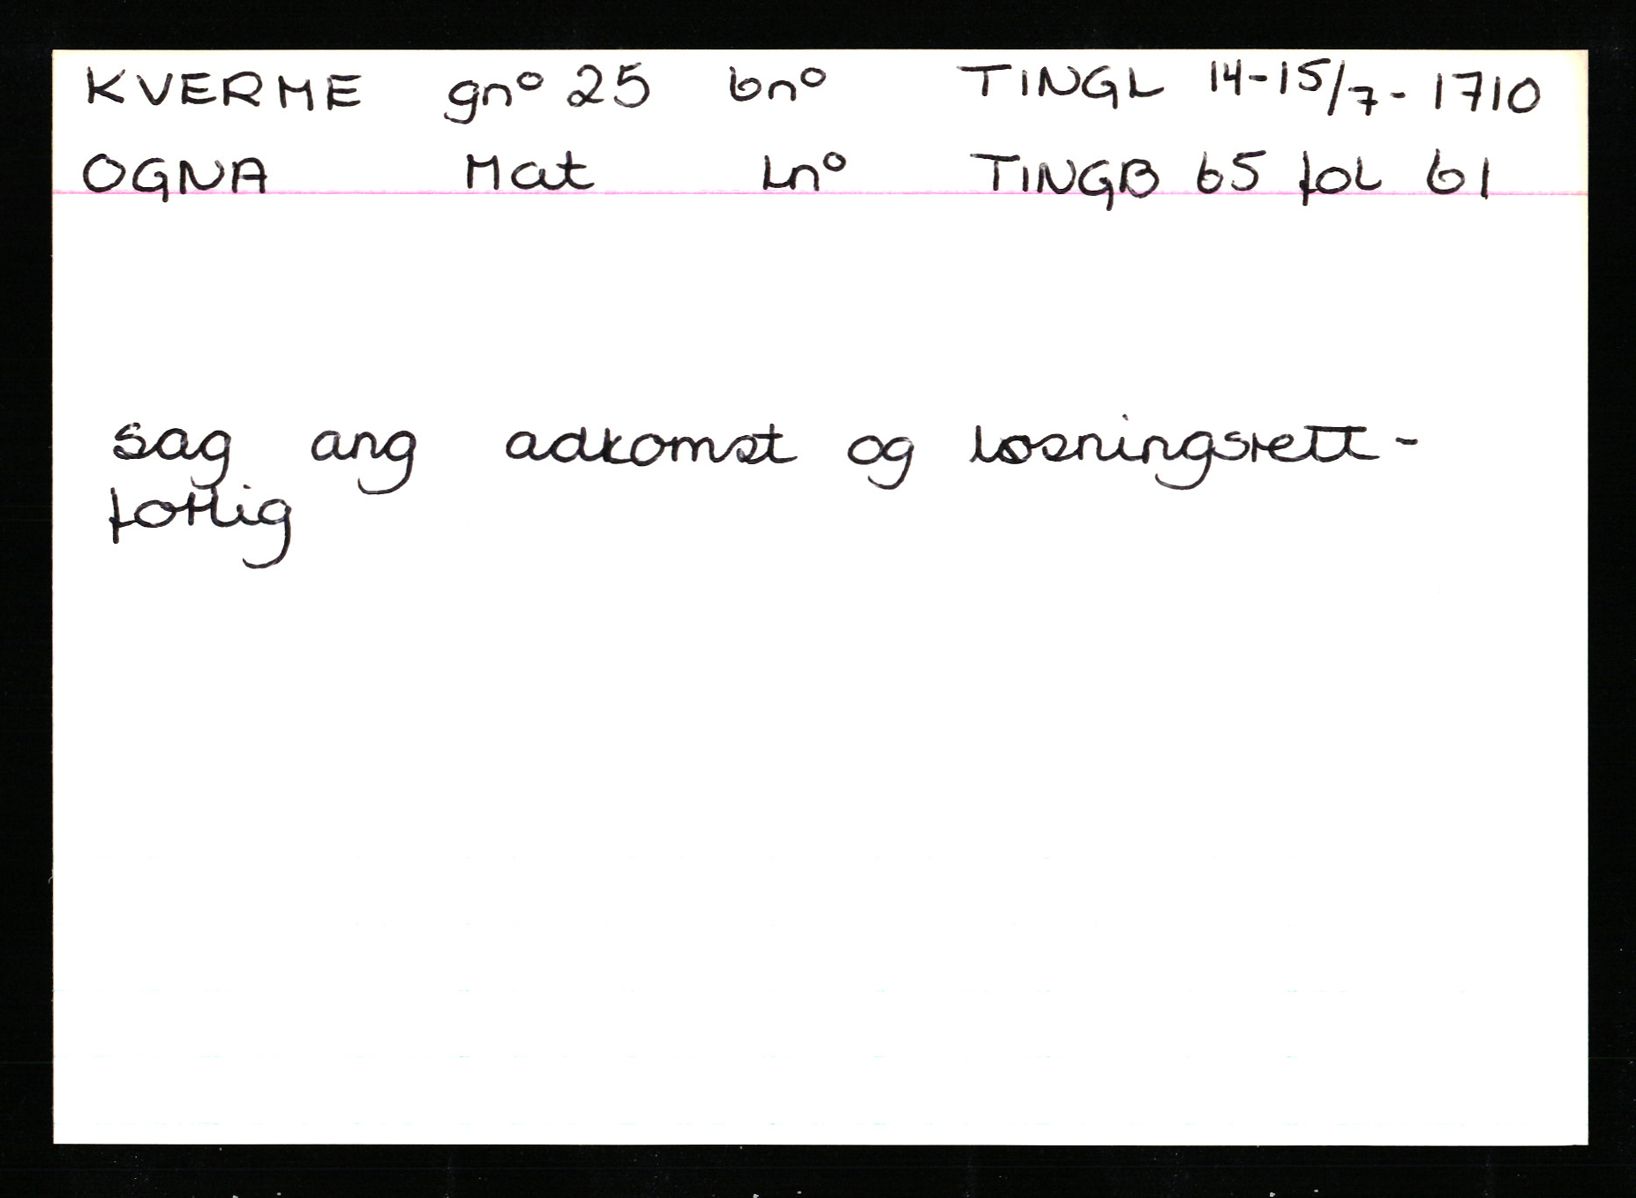 KVERME gnº 25 bnº TINGL 14-15/7-1710
OGNA Mat Lnº TINGB 65 fol 61
sag ang adkomst og løsningsrett-
forlig